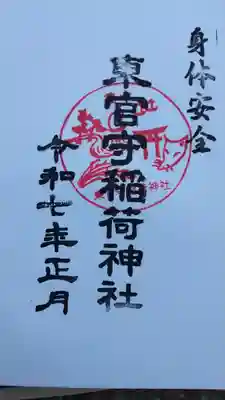 身体安全
東官守稲荷神社
令和七年正月
神社